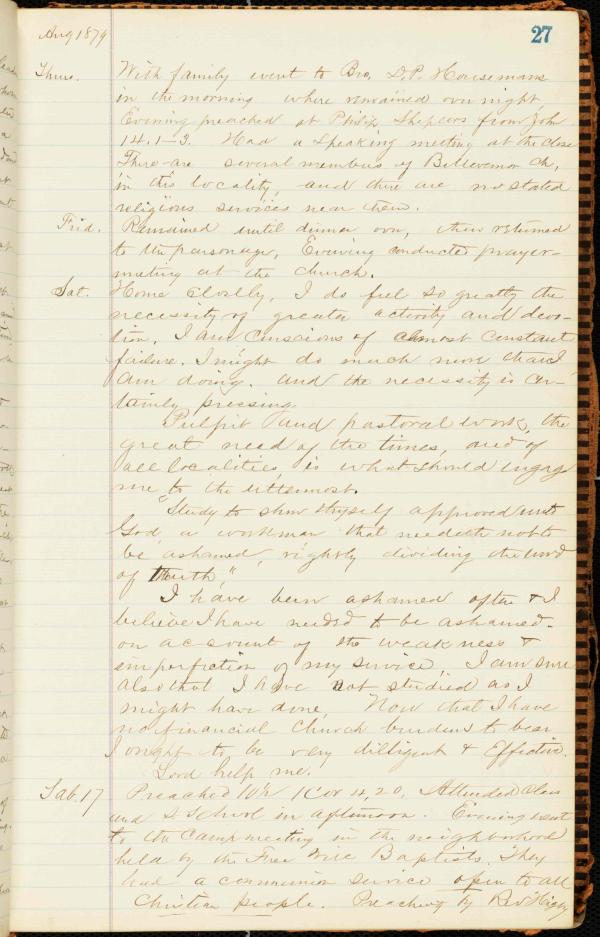 Aug 1879
27
Thurs. With family went to Bro. D.P. Housemans
in the morning where remained over night,
Evening preached at Philip Sheplers from John
14.1-3. Had a speaking meeting at the close
There are several members of Bellevernon Ch,
in this locality, and there are no stated
religious services near them.
Frid. Remained until dinner over, then returned
to the parsonage, Evening conducted prayer-
meeting at the church.
Sat. Home closely, I do feel so greatly the
necessity of greater activity and devo-
tion, I am conscious of almost constant
failure. I might do much more than I
am doing. and the necessity is cer-
tainly pressing.
Pulpit and pastoral work, the
great need of the times, and of
all localities, is what should engage
me to the uttermost.
"Study to show thyself approved unto
God, a workman that needeth not to
be ashamed, rightly dividing the word
of truth,"
I have been ashamed often & I
believe I have needed to be ashamed-
on account of the weakness &
imperfection of my service, I am sure
also that I have not studied as I
might have done, Now that I have
no financial church burdens to bear
I ought to be very dilligent & Effective.
Lord help me.
Sab. 17 Preached 10½ 1 Cor 4,20, Attended Class
and S School in afternoon. Evening went
to the Campmeeting in the neighborhood
held by the Free Will Baptists. They
had a communion service open to all
Christian people. Preaching by Rev